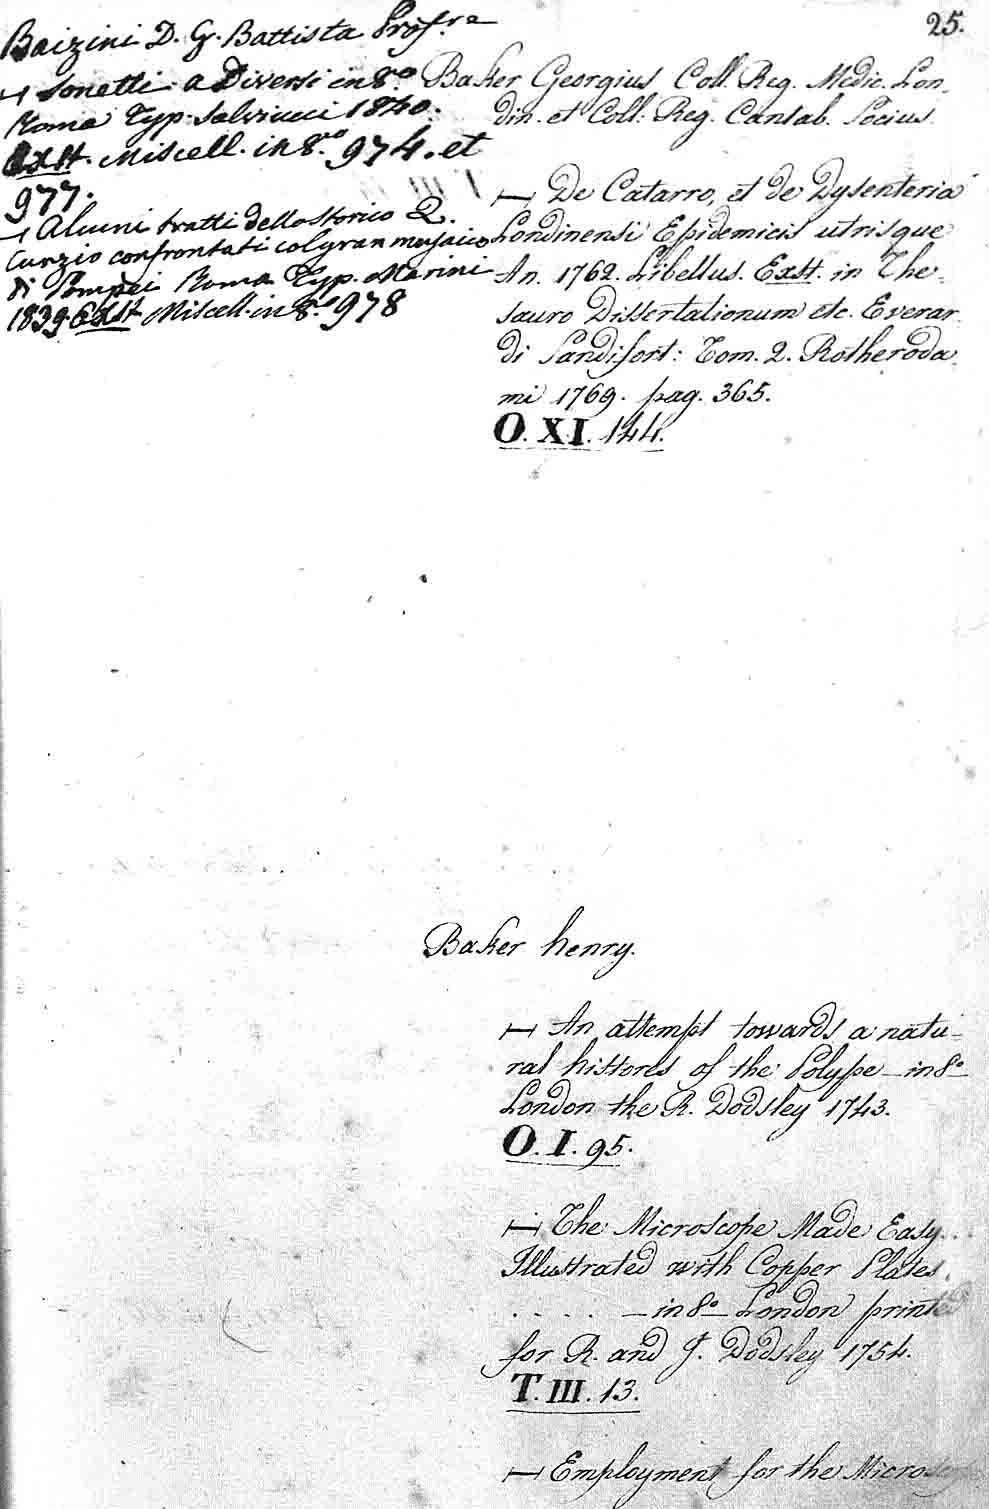 25.
Baizini D. G. Battista Prof.re
— Sonetti a Diversi in 8.o
Roma Typ. Salviucci 1840.
Exst. Miscell. in 8.o 974. et
977.
— Alcuni tratti dello storico Q.
Curzio confrontati col gran musaico
di Pompei Roma Typ. Marini
1839. Exst Miscell. in 8.o 978
Baker Georgius Coll. Reg. Medic. Lon-
din. et Coll: Reg. Cantab. Socius.
— De Catarro, et de Dysenteria
Londinensi Epidemicis utrisque
An. 1762. Libellus. Exst. in The-
sauro Dissertationum etc. Everar-
di Sandifort: Tom. 2. Rotheroda-
mi 1769. pag. 365.
O. XI. 144.
Baker henry.
— An attempt towards a natu-
ral histores of the Polype — in 8o —
London the R. Dodsley 1743.
O. I. 95.
— The Microscope Made Easy...
Illustrated with Copper Plates.
. . . . — in 8o — London printed
for R. and J. Dodsley 1754.
T. III. 13.
— Employment for the Microscope